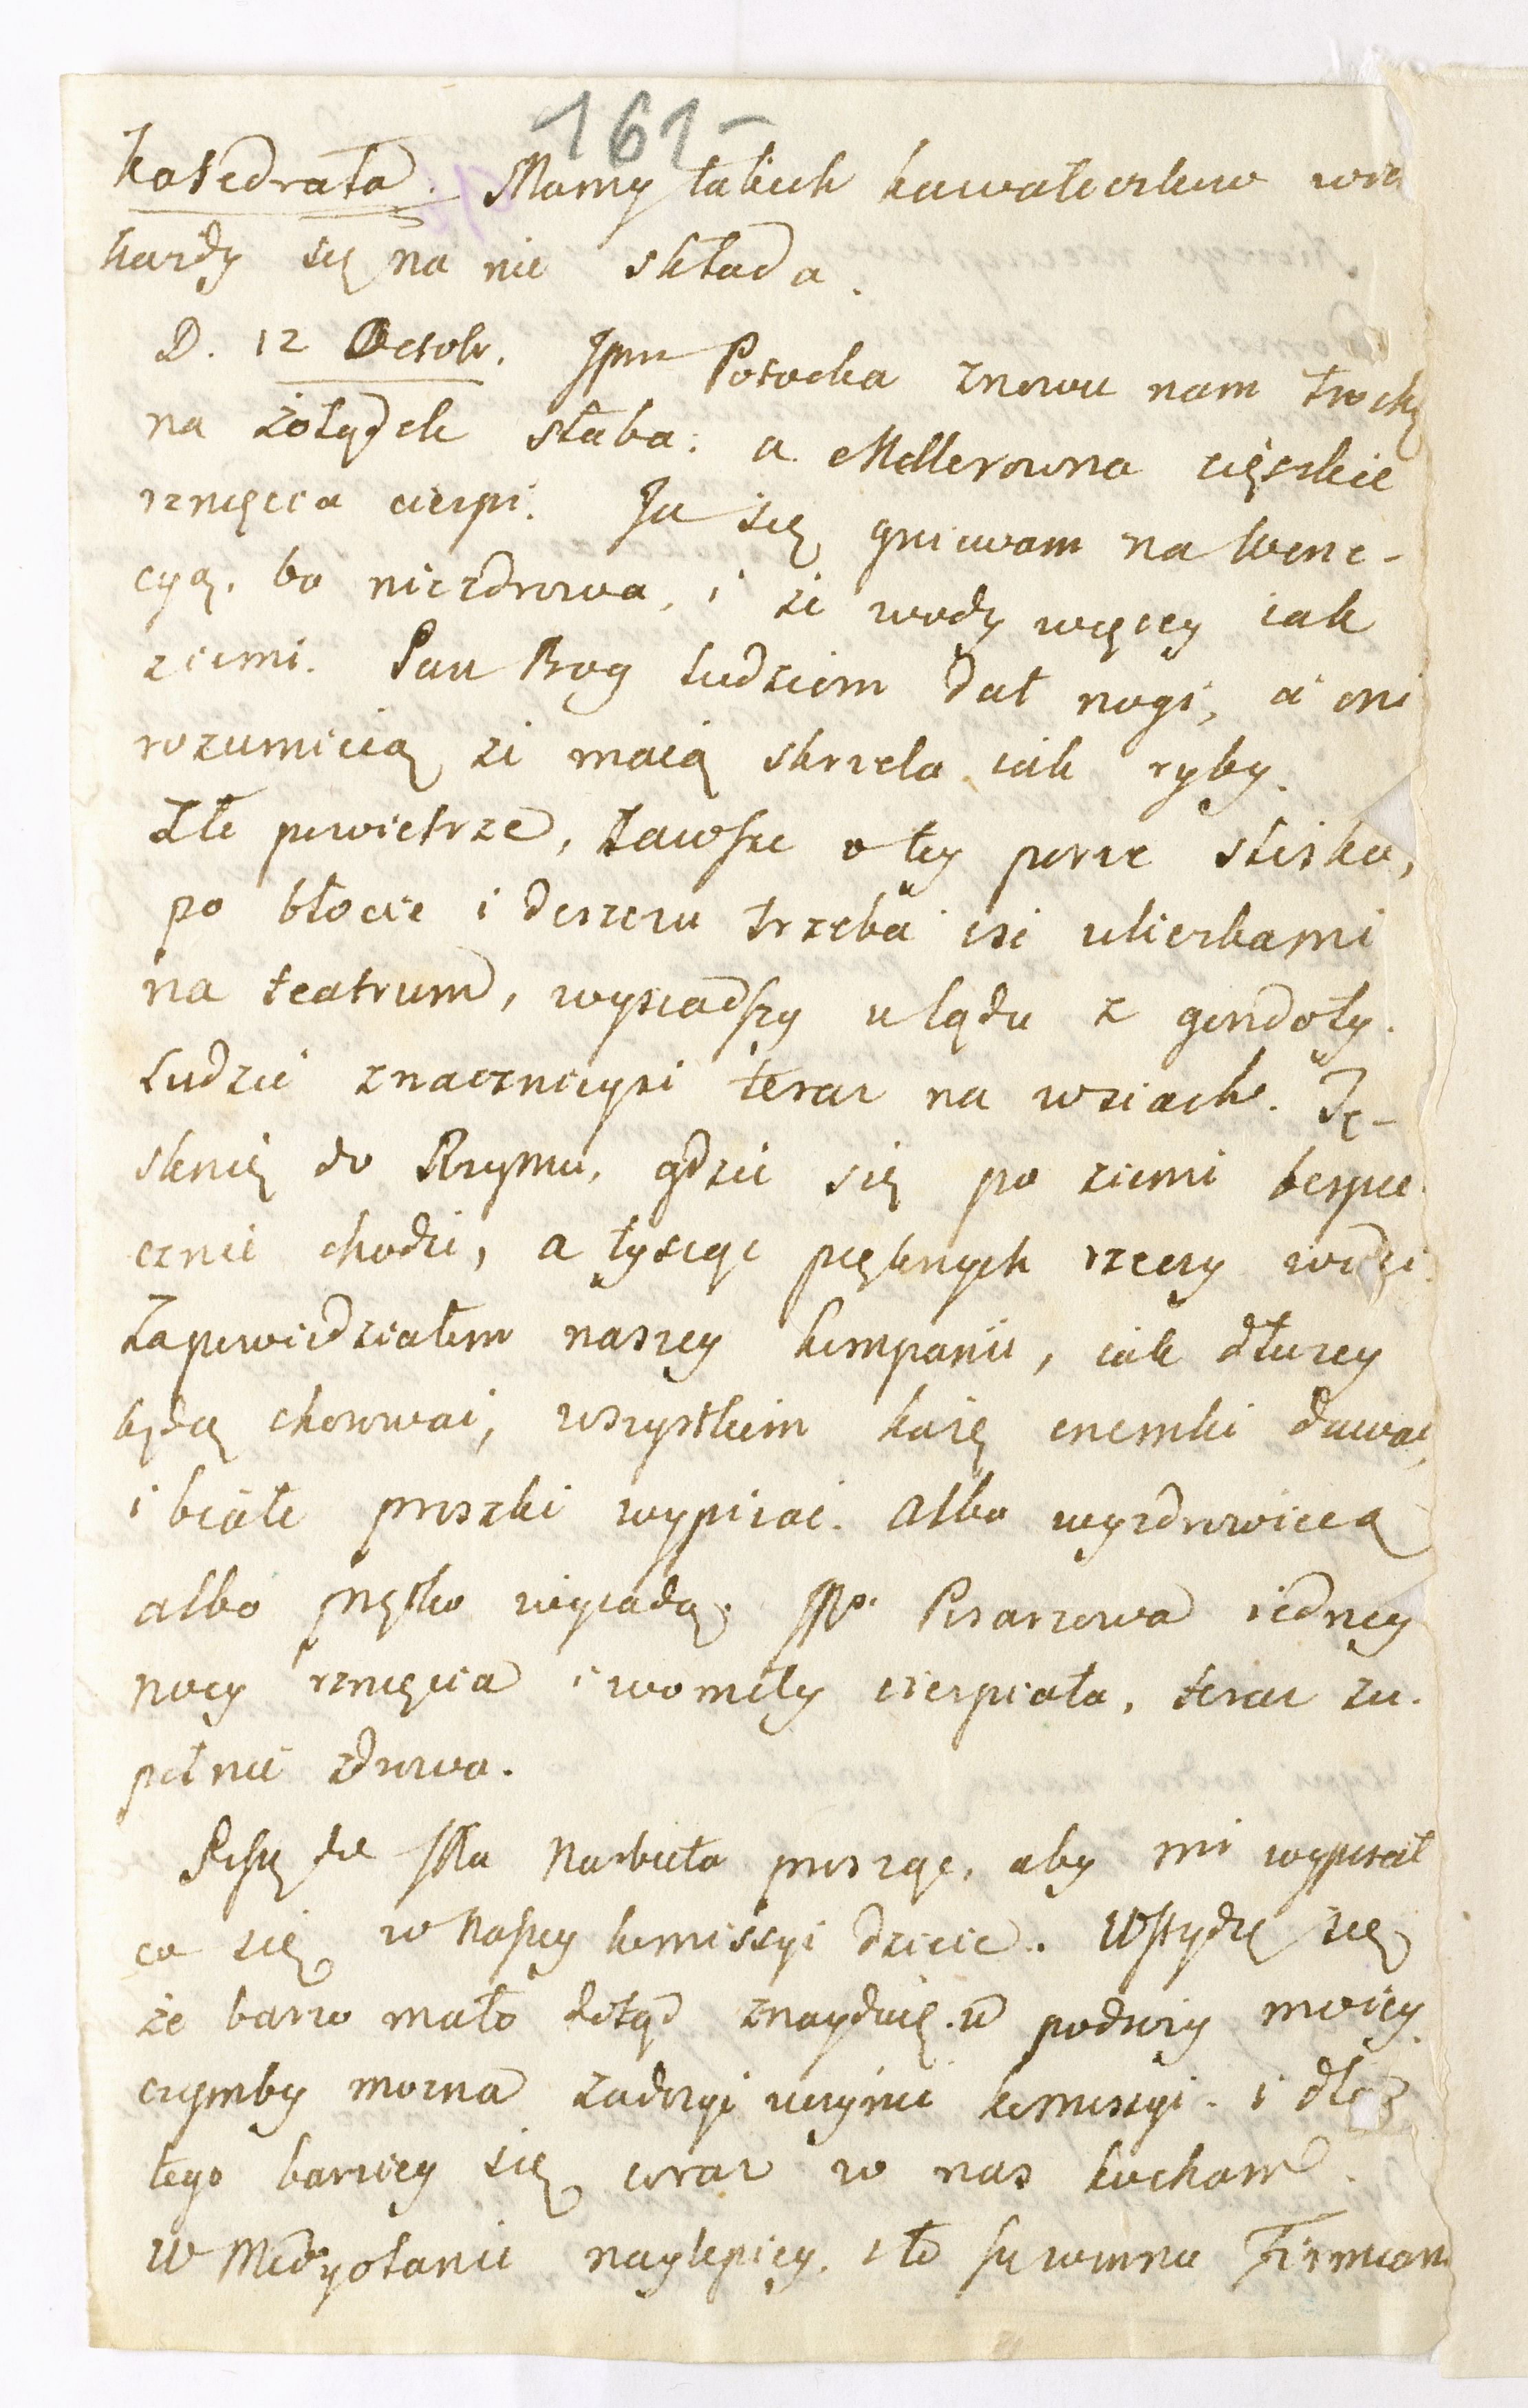 161-
katedrała. Mamy takich kawałeczkow wie
każdy się na nie składa.
D. 12 Octobr. Jpni Potocka znowu nam trochę
na żołądek słaba: a Mellerowna cięszkie
rznięcia cierpi. Ja się gniewam na Wene-
cyą, bo niezdrowa, i że wody więcey iak
ziemi. Pan Bog ludziom dał nogi, a oni
rozumieią że maią skrzela iak ryby.
Złe powietrze, zawsze o tey porze slisko,
po błocie i deszczu trzeba iść uliczkami
na teatrum, wysiadszy u lądu z gondoły.
Ludzie znacznieysi teraz na wsiach. Tę-
sknię do Rzymu, gdzie się po ziemi bespie-
cznie chodzi, a tysiąc pięknych rzeczy widzi.
Zapowiedziałem naszey kompanii, iak dłużey
będą chorować, wszystkim każę enemki dawać,
i białe proszki wypiiać. Albo wyzdrowieią
albo prętko wyiadą. JPa. Pisarzowa iedney
nocy rznięcia i womity cierpiała, teraz zu-
pełnie zdrowa.
Piszę do JPa Narbuta prosząc, aby mi wypisał
co się w naszey komissyi dzieie. Wstydzę się
że barzo mało dotąd znayduię w podroży moiey
czymby można zadosyć uczynić komissyi. i dla
tego barziey się coraz w nas kocham.
W Medyolanie naylepiey, i to są winne Firmian